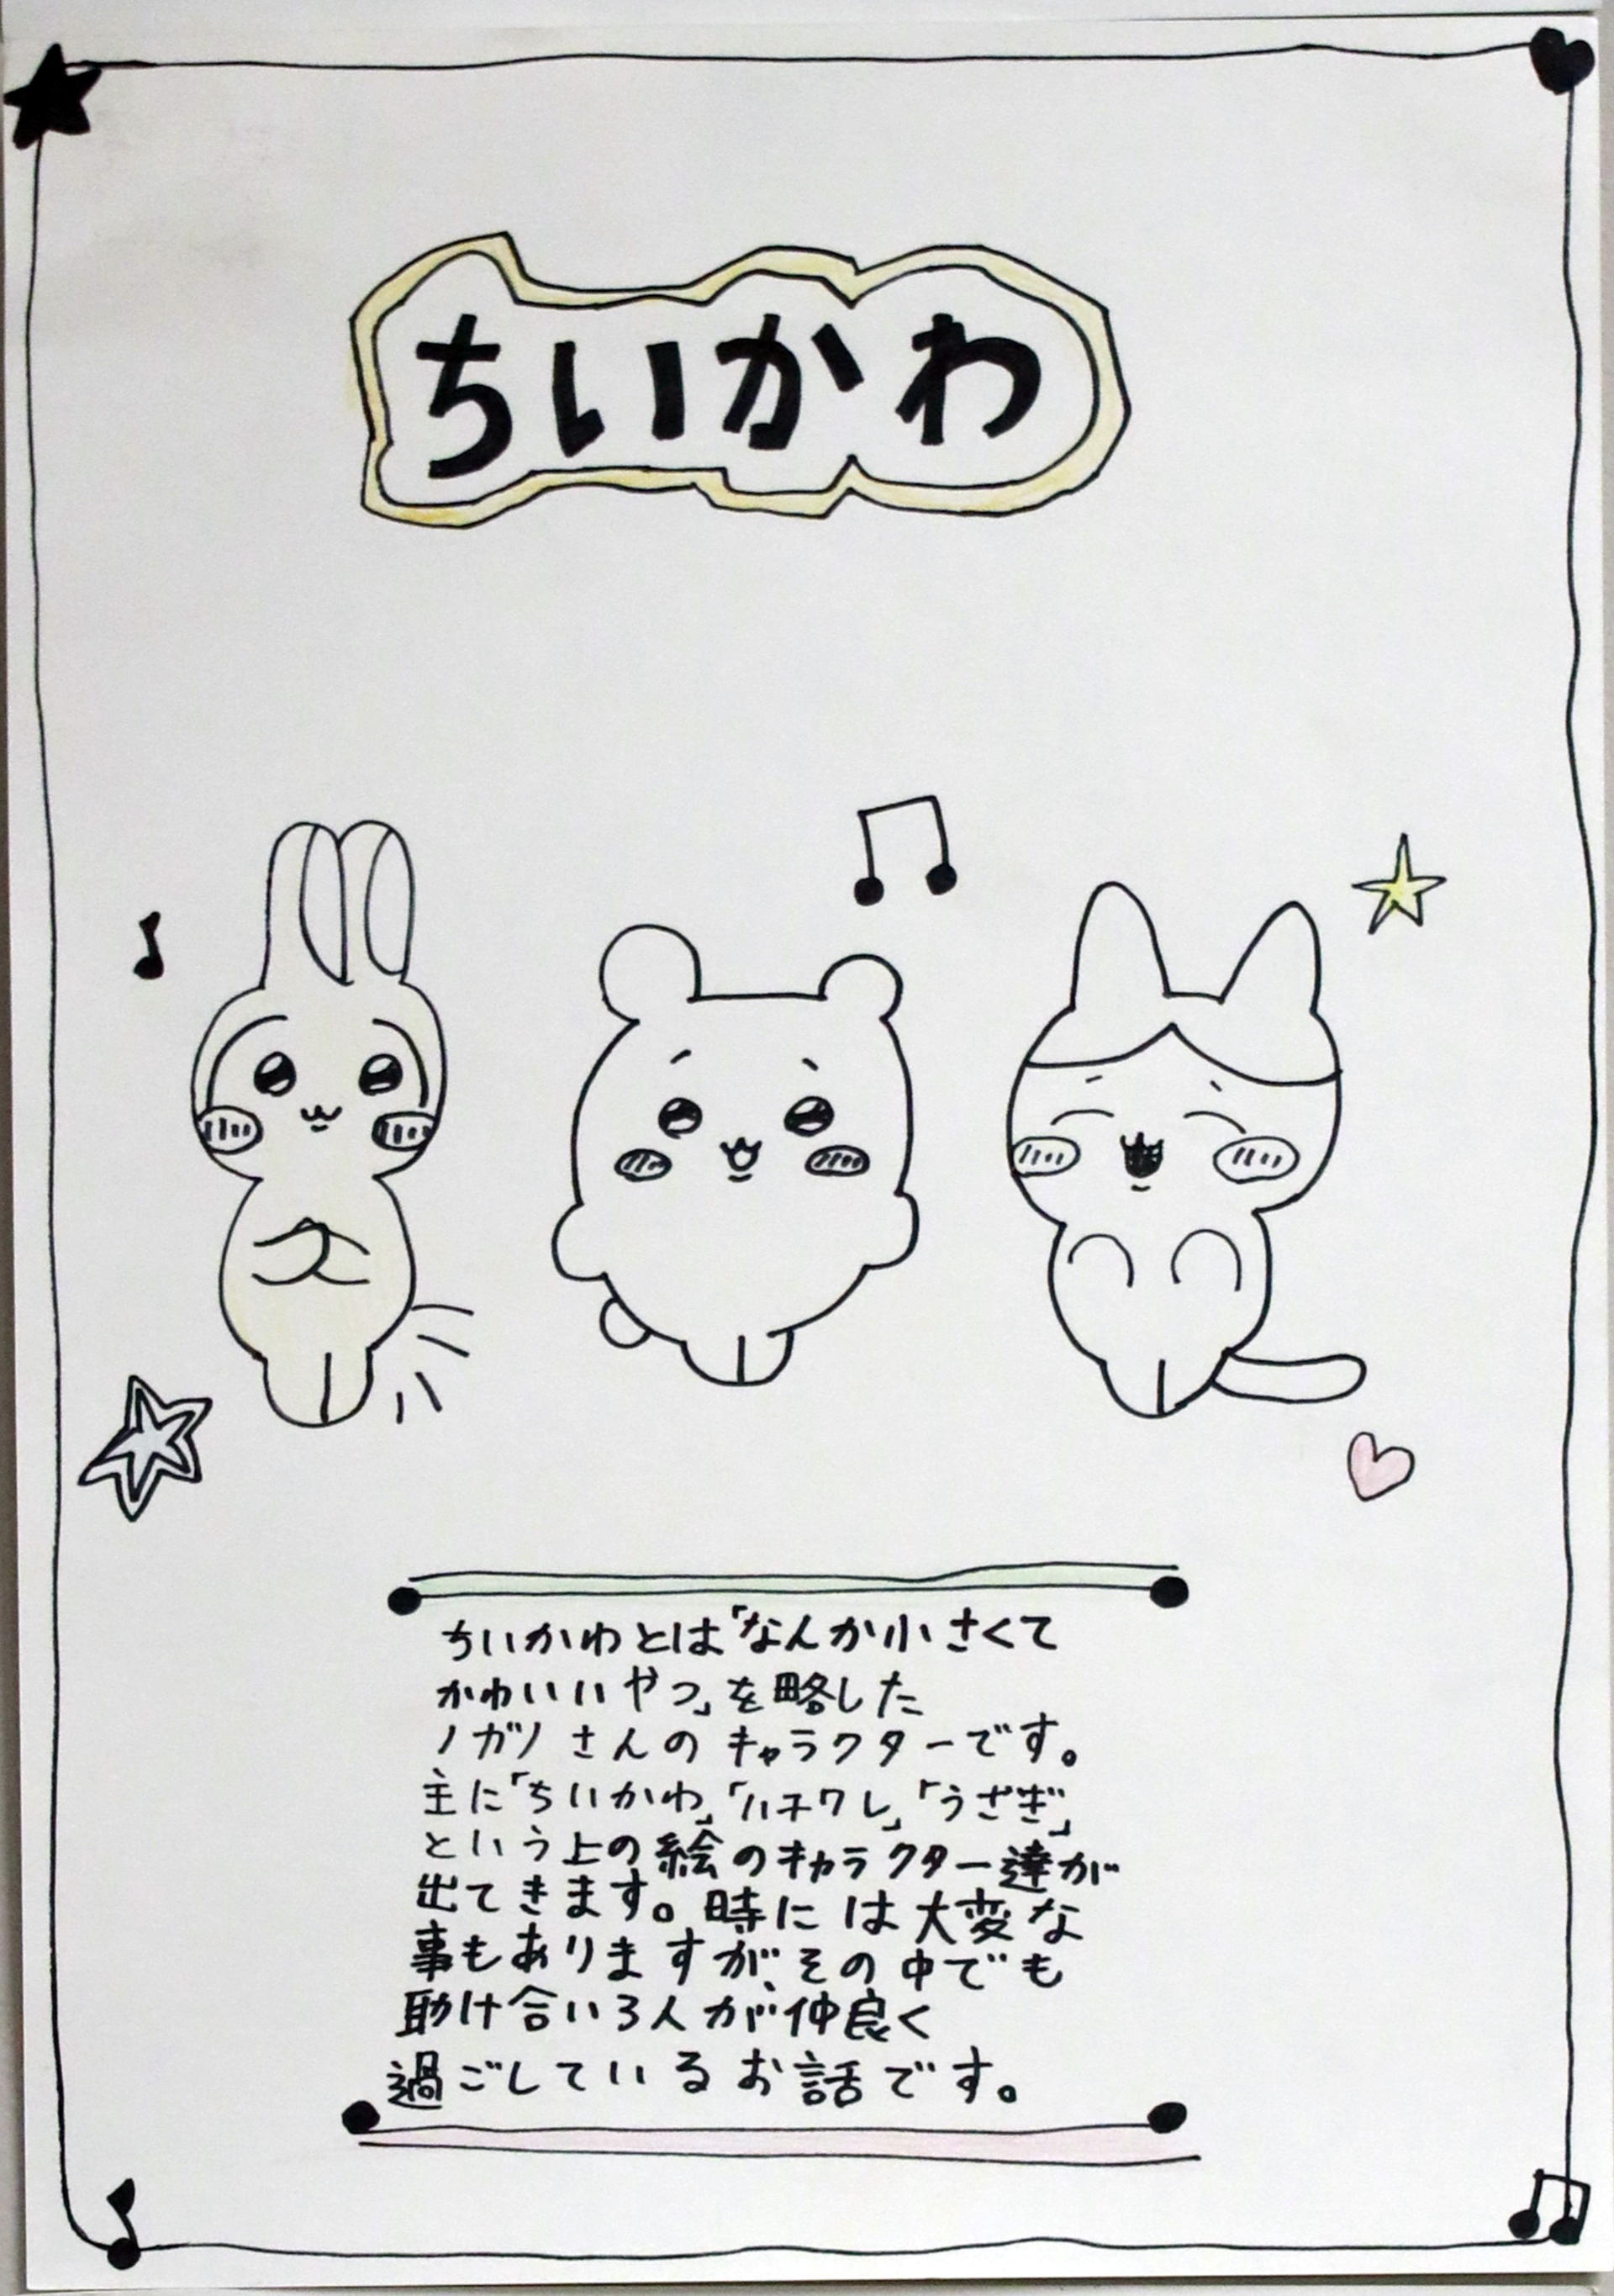 ちいかわ
ちいかわとは「なんか小さくて
かわいいやつ」を略した
ノガノさんのキャラクターです。
主に「ちいかわ」「ハチワレ」「うさぎ」
という上の絵のキャラクター達が
出てきます。時には大変な
事もありますが、その中でも
助け合い3人が仲良く
過ごしているお話です。